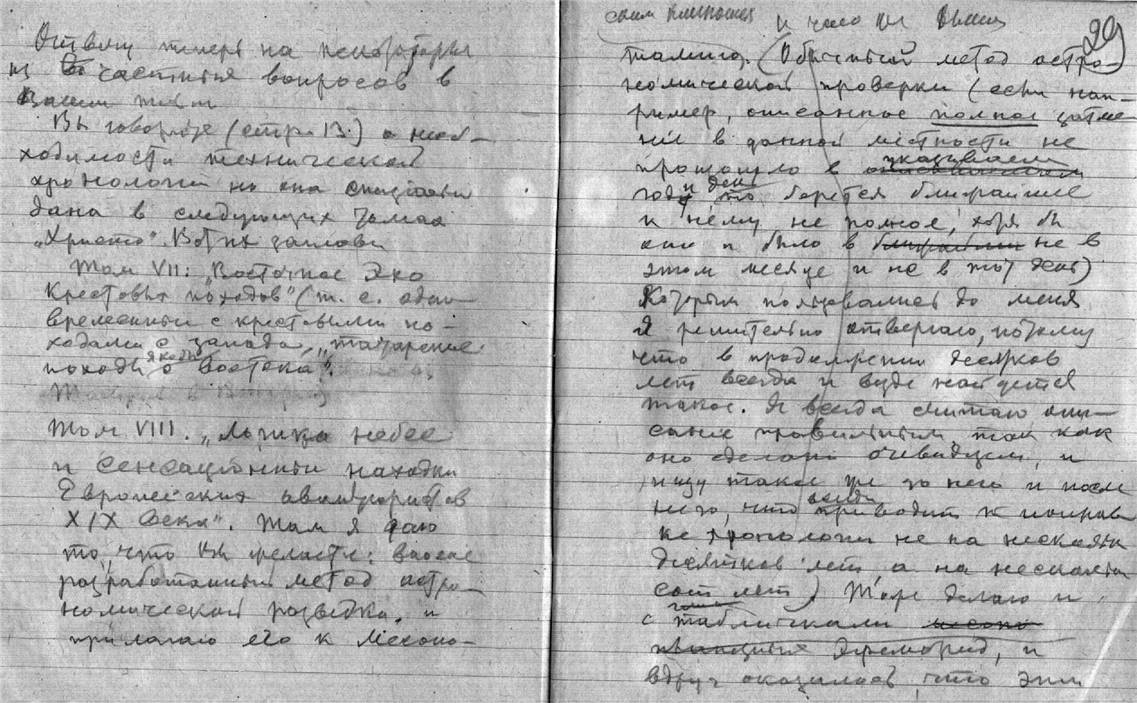 Отвечу теперь на некоторые
из частных вопросов в
Вашем
Вы говорите (стр. 13.) о необ-
ходимости технической
хронологии но она
дана в следующих томах
„Христа". Вот их заглавия
Том VII: „Восточное Эхо
Крестовых походов" (т. е. одно-
временные с крестовыми по-
ходами с запада, „татарские
походы якобы с Востока".
Том VIII. „Лирика небес
и сенсационные находки
Европейских авантюристов
XIX века". Там я даю
то, что Вы желаете: вполне
разработанный метод астро-
номической разведки, и
прилагаю его к Месопо-
29
и чего Вы
тамию. (Обычный метод астро-
номической проверки (если нап-
ример, описанное полное затме-
ние в данной местности не
произошло в указываем
году и день то берется ближайшее
к нему не полное, хотя бы
оно и было в не в
этом месяце и не в тот день)
Которым пользовались до меня
я решительно отвергаю, потому
что в продолжении десятков
лет всегда и везде найдется
такое. Я всегда считаю опи-
сание правильным, так как
оно сделано очевидцем, и
ищу такое же до него и после
него, что всегда приводит к поправ
ке хронологии не на несколько
десятков лет а на несколько
сот лет) Тоже делаю и
с табличками
эфемерид, и
вдруг оказалось, что эти